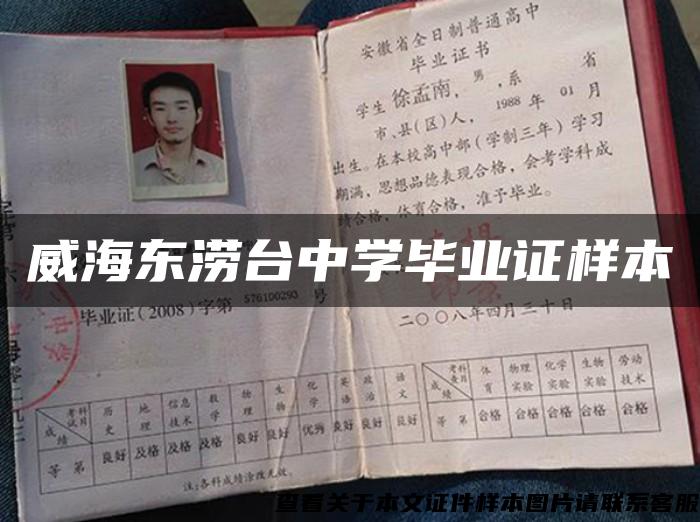 安徽省全日制普通高中
毕业证书
学生徐孟南，男，系 省
市、县(区)人，1988年01月
出生。在本校高中部(学制三年)学习
期满，思想品德表现合格，会考学科成
绩合格，体育合格，准予毕业。
威海东涝台中学毕业证样本
毕业证(2008)字第576100293号
二〇〇八年四月三十日
考试科目 成绩 历史 地理 信息技术 数学 物理 生物 化学 英语 政治 语文
等第 良好 及格 及格 及格 良好 良好 优秀 良好 良好 良好
注:各科成绩涂改无效。
考查科目 成绩 体育 物理实验 化学实验 生物实验 劳动技术
等第 合格 合格 合格 合格 合格
查看关于本文证件样本图片请联系客服